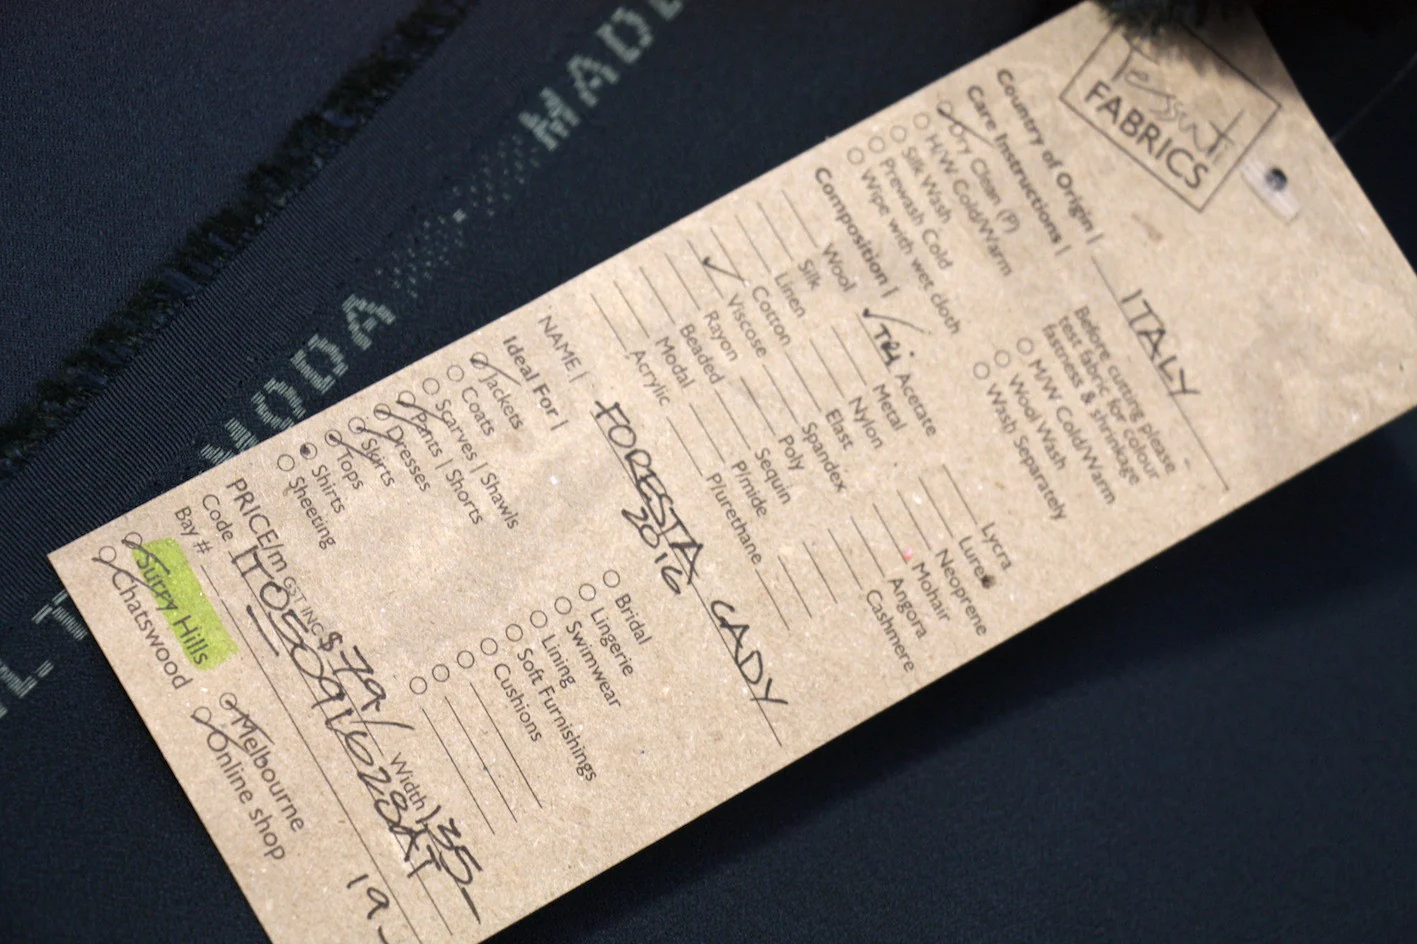 Tessuti
FABRICS
Country of Origin | ITALY
Care Instructions |
Dry Clean (P)
H/W Cold/Warm
Silk Wash
Prewash Cold
Wipe with wet cloth
Before cutting please
test fabric for colour
fastness & shrinkage
M/W Cold/Warm
Wool Wash
Wash Separately
Composition |
Wool
Silk
Linen
Cotton
Viscose
Rayon
Beaded
Modal
Acrylic
TRI Acetate
Metal
Nylon
Elast
Spandex
Poly
Sequin
P/mide
P/urethane
Lycra
Lurex
Neoprene
Mohair
Angora
Cashmere
NAME | FORESTA CADY
2016
Ideal For |
Jackets
Coats
Scarves | Shawls
Pants | Shorts
Dresses
Skirts
Tops
Shirts
Sheeting
Bridal
Lingerie
Swimwear
Lining
Soft Furnishings
Cushions
PRICE/m GST INC $79/ Width 135
Code
Bay # 19
Surry Hills
Chatswood
Melbourne
Online shop
MODA
MADE